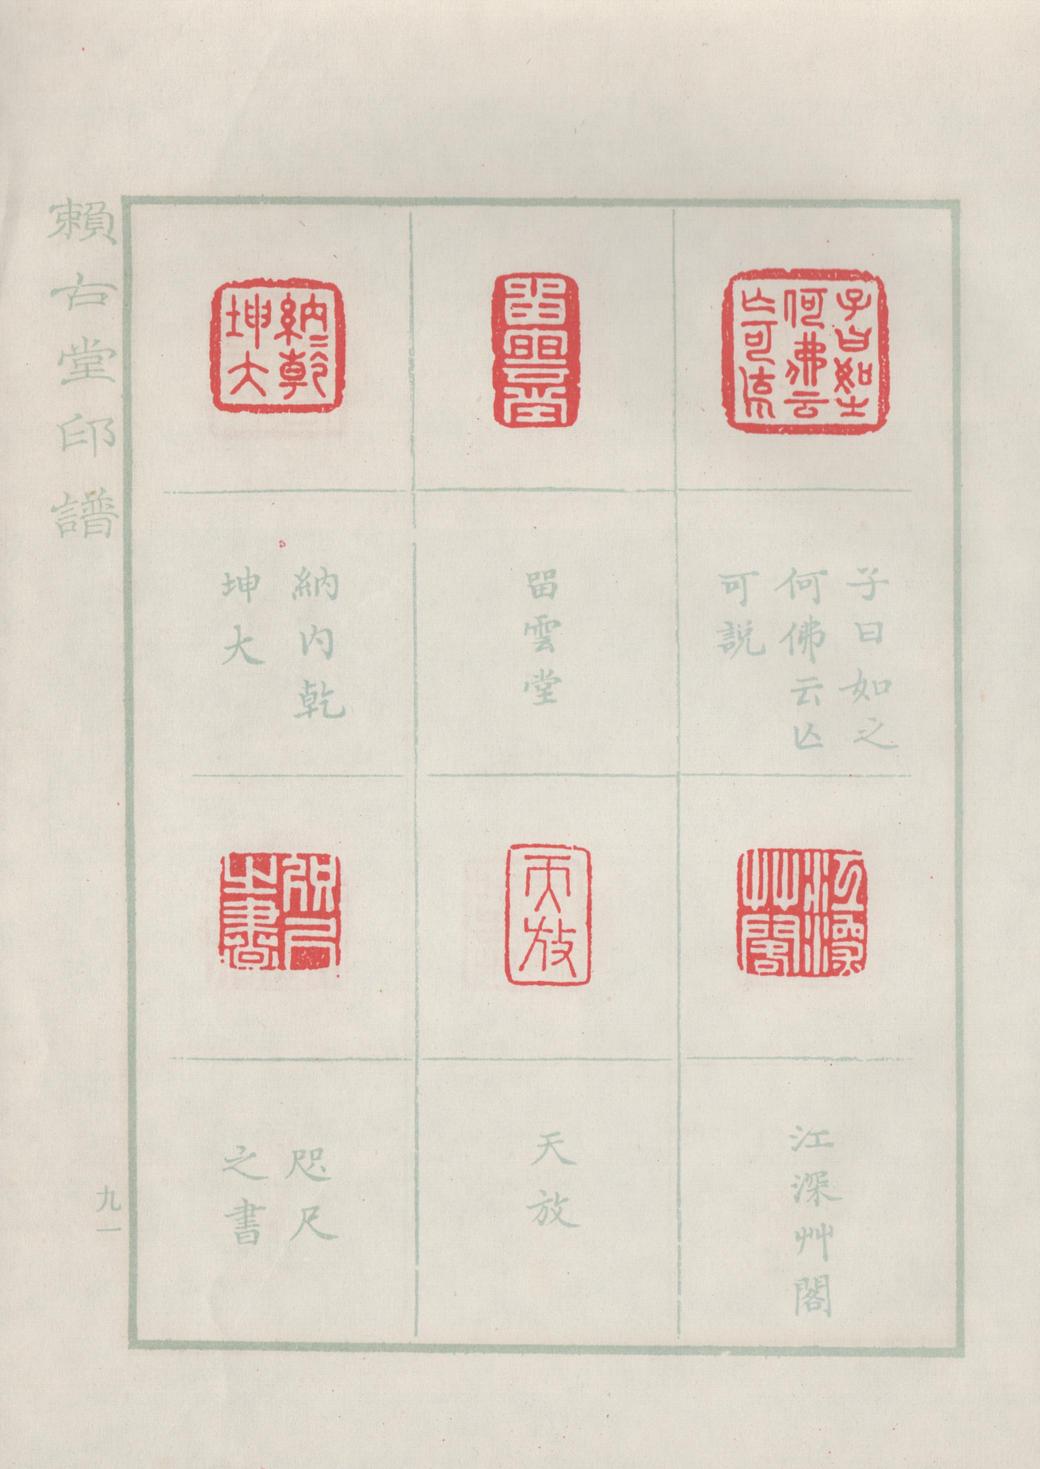 賴古堂印譜
子曰如之
何佛云亾
可説
畱雲堂
納内乾
坤大
江深艸閣
天放
咫尺
之書
九一